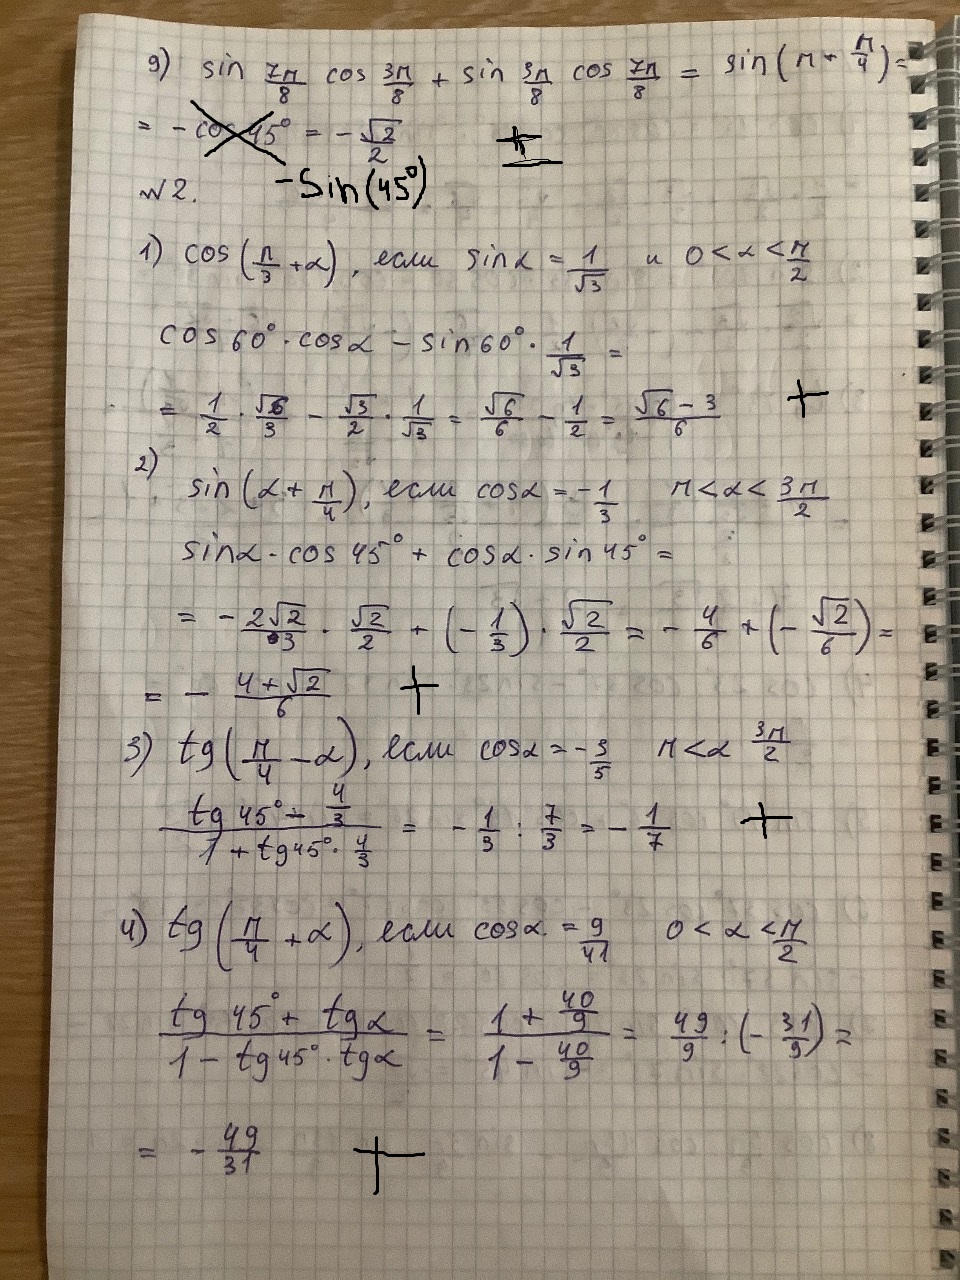 9) sin 7π/8 cos 3π/8 + sin 3π/8 cos 7π/8 = sin(π + π/4) =
= - cos 45° = - √2/2 ±
- Sin(45°)
№2.
1) cos(π/3 + α), если sinα = 1/√3 и 0 < α < π/2
cos 60° · cosα - sin 60° · 1/√3 =
= 1/2 · √6/3 - √3/2 · 1/√3 = √6/6 - 1/2 = (√6 - 3)/6 +
2) sin(α + π/4), если cosα = -1/3 π < α < 3π/2
sinα · cos 45° + cosα · sin 45° =
= - 2√2/3 · √2/2 + (-1/3) · √2/2 = - 4/6 + (- √2/6) =
= - (4 + √2)/6 +
3) tg(π/4 - α), если cosα = -3/5 π < α 3π/2
(tg 45° - 4/3)/(1 + tg 45° · 4/3) = - 1/3 : 7/3 = - 1/7 +
4) tg(π/4 + α), если cosα = 9/41 0 < α < π/2
(tg 45° + tgα)/(1 - tg 45° · tgα) = (1 + 40/9)/(1 - 40/9) = 49/9 : (- 31/9) =
= - 49/31 +